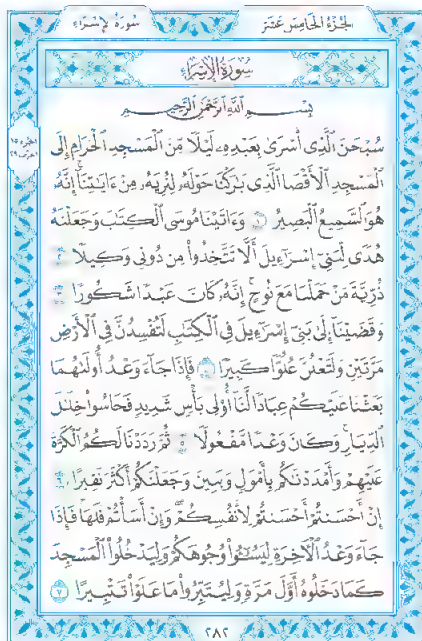 الجزء الخامس عشر سورة الإسراء
سورة الإسراء
بسم الله الرحمن الرحيم
سُبْحَٰنَ ٱلَّذِىٓ أَسْرَىٰ بِعَبْدِهِۦ لَيْلًا مِّنَ ٱلْمَسْجِدِ ٱلْحَرَامِ إِلَى
ٱلْمَسْجِدِ ٱلْأَقْصَا ٱلَّذِى بَٰرَكْنَا حَوْلَهُۥ لِنُرِيَهُۥ مِنْ ءَايَٰتِنَآ إِنَّهُۥ
هُوَ ٱلسَّمِيعُ ٱلْبَصِيرُ ١ وَءَاتَيْنَا مُوسَى ٱلْكِتَٰبَ وَجَعَلْنَٰهُ
هُدًى لِّبَنِىٓ إِسْرَٰٓءِيلَ أَلَّا تَتَّخِذُوا۟ مِن دُونِى وَكِيلًا ٢
ذُرِّيَّةَ مَنْ حَمَلْنَا مَعَ نُوحٍ إِنَّهُۥ كَانَ عَبْدًا شَكُورًا ٣
وَقَضَيْنَآ إِلَىٰ بَنِىٓ إِسْرَٰٓءِيلَ فِى ٱلْكِتَٰبِ لَتُفْسِدُنَّ فِى ٱلْأَرْضِ
مَرَّتَيْنِ وَلَتَعْلُنَّ عُلُوًّا كَبِيرًا ٤ فَإِذَا جَآءَ وَعْدُ أُولَىٰهُمَا
بَعَثْنَا عَلَيْكُمْ عِبَادًا لَّنَآ أُو۟لِى بَأْسٍ شَدِيدٍ فَجَاسُوا۟ خِلَٰلَ
ٱلدِّيَارِ وَكَانَ وَعْدًا مَّفْعُولًا ٥ ثُمَّ رَدَدْنَا لَكُمُ ٱلْكَرَّةَ
عَلَيْهِمْ وَأَمْدَدْنَٰكُم بِأَمْوَٰلٍ وَبَنِينَ وَجَعَلْنَٰكُمْ أَكْثَرَ نَفِيرًا ٦
إِنْ أَحْسَنتُمْ أَحْسَنتُمْ لِأَنفُسِكُمْ وَإِنْ أَسَأْتُمْ فَلَهَا فَإِذَا
جَآءَ وَعْدُ ٱلْءَاخِرَةِ لِيَسُۥٓـُٔوا۟ وُجُوهَكُمْ وَلِيَدْخُلُوا۟ ٱلْمَسْجِدَ
كَمَا دَخَلُوهُ أَوَّلَ مَرَّةٍ وَلِيُتَبِّرُوا۟ مَا عَلَوْا۟ تَتْبِيرًا ٧
٢٨٢